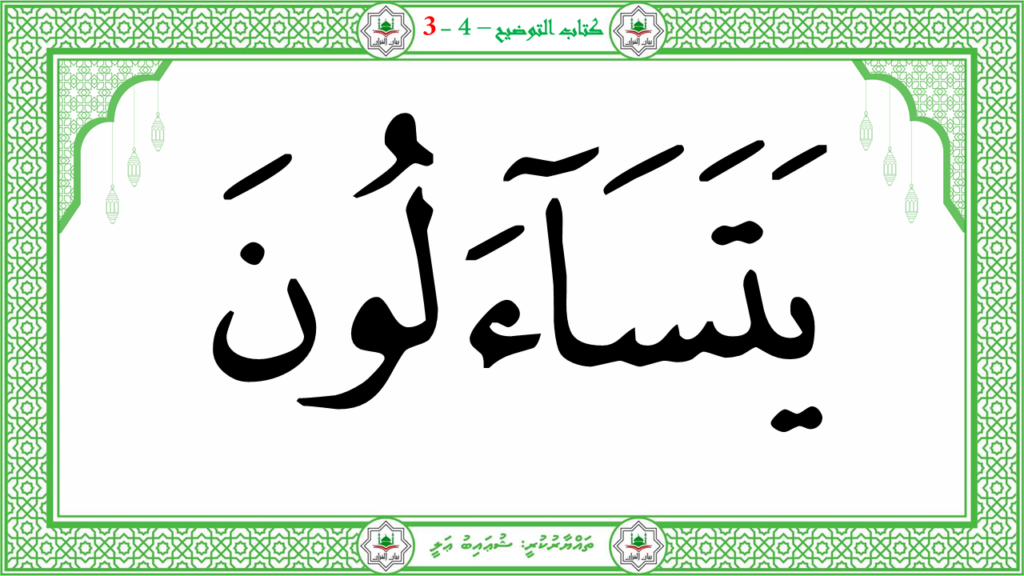 كتاب التوضيح – 4 - 3
يَتَسَآءَلُونَ
ތައްޔާރުކުރީ: ޝުޢައިބު ޢަލީ